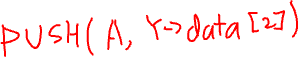 PUSH(A, Y->data[2])